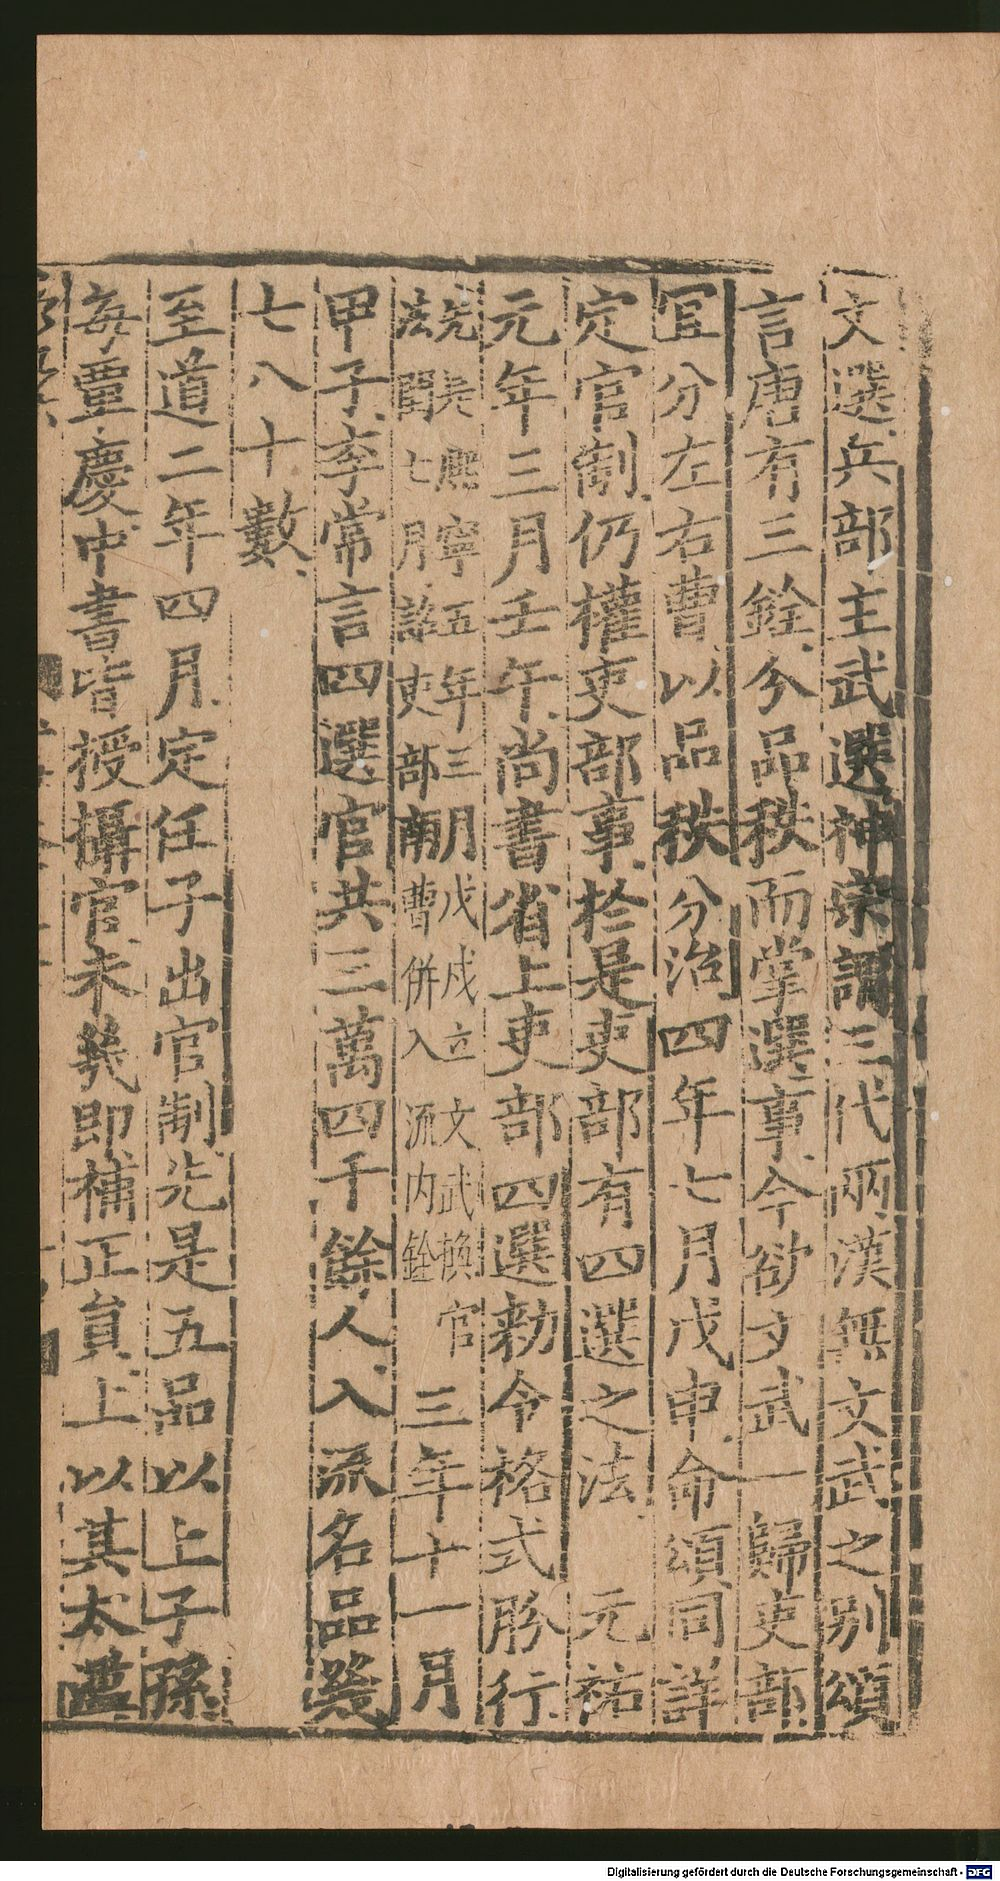 文選兵部主武選神宗謂三代兩漢無文武之别頌
言唐有三銓分品秩而掌選事今欲文武一歸吏部
宜分左右曹以品秩分治四年七月戊申命頌同詳
定官制仍權吏部事於是吏部有四選之法 元祐
元年三月壬午尚書省上吏部四選勑令格式肦行
先是熈寧五年三月戊戍立文武換官
法閏七月詔吏部南曹併入流内銓 三年十一月
甲子李常言四選官共三萬四千餘人入流名品幾
七八十數
至道二年四月定任子出官制先是五品以上子孫
每覃慶中書皆授攝官未幾即補正貟上以其太濫
Digitalisierung gefördert durch die Deutsche Forschungsgemeinschaft - DFG